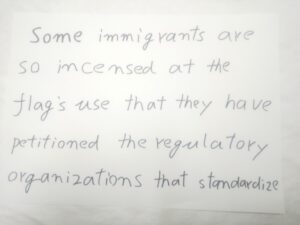 Some immigrants are
so incensed at the
flag's use that they have
petitioned the regulatory
organizations that standardize